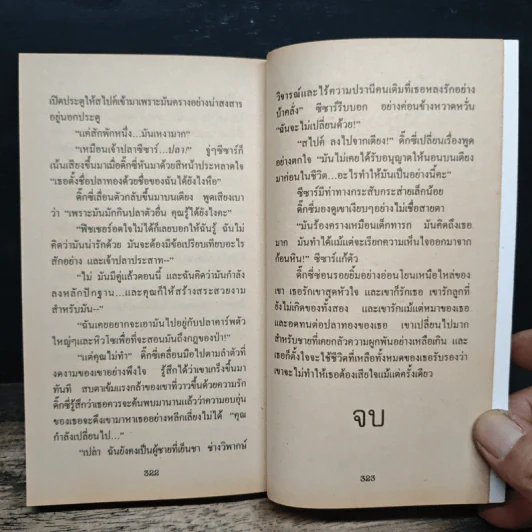 เปิดประตูให้สไปค์เข้ามาเพราะมันครางอย่างน่าสงสาร
อยู่นอกประตู
"แค่สักพักหนึ่ง...มันเหงามาก"
"เหมือนเจ้าปลาซีซาร์...ปลา" จู่ๆซีซาร์ก็
เน้นเสียงขึ้นมาเมื่อดิ๊กซี่หันมาด้วยสีหน้าประหลาดใจ
"เธอตั้งชื่อปลาทองด้วยชื่อของฉันได้ยังไงหือ"
ดิ๊กซี่เลื่อนตัวกลับขึ้นมาบนเตียง พูดเสียงเบา
ว่า "เพราะมันมักกินปลาตัวอื่น คุณรู้ได้ยังไงคะ"
"ฟิชเชอร์อดใจไม่ได้ก็เลยบอกให้ฉันรู้ ฉันไม่
คิดว่ามันน่ารักด้วย มันจะต้องมีข้อเปรียบเทียบอะไร
สักอย่าง และเจ้าปลาประสาท--"
"ไม่ มันมีคู่แล้วตอนนี้ และฉันคิดว่ามันกำลัง
ลงหลักปักฐาน...และคุณก็ให้สร้างสระสวยงาม
สำหรับมัน--"
"ฉันเคยอยากจะเอามันไปอยู่กับปลาคาร์พตัว
ใหญ่ๆและหิวโซเพื่อที่จะสอนมันถึงกฎของป่า!"
"แต่คุณไม่ทำ" ดิ๊กซี่เคลื่อนมือไปตามลำตัวที่
งดงามของเขาอย่างพึงใจ รู้สึกได้ว่าเขาเกร็งขึ้นมา
ทันที สบตาเข้มแรงกล้าของเขาที่วาวขึ้นด้วยความรัก
ดิ๊กซี่รู้สึกว่าเธอควรจะค้นพบมานานแล้วว่าความอบอุ่น
ของเธอจะดึงเขามาหาเธออย่างหลีกเลี่ยงไม่ได้ "คุณ
กำลังเปลี่ยนไป..."
"เปล่า ฉันยังคงเป็นผู้ชายที่เย็นชา ช่างวิพากษ์
322
วิจารณ์และไร้ความปรานีคนเดิมที่เธอหลงรักอย่าง
บ้าคลั่ง" ซีซาร์รีบบอก อย่างค่อนข้างหวาดหวั่น
"ฉันจะไม่เปลี่ยนด้วย!"
"สไปค์ ลงไปจากเตียง!" ดิ๊กซี่เปลี่ยนเรื่องพูด
อย่างตกใจ "มันไม่เคยได้รับอนุญาตให้นอนบนเตียง
มาก่อนในชีวิต...อะไรทำให้มันเป็นอย่างนี้คะ"
ซีซาร์มีท่าทางกระสับกระส่ายเล็กน้อย
ดิ๊กซี่มองดูเขาเงียบๆอย่างไม่เชื่อสายตา
"มันร้องครางเหมือนเด็กทารก มันคิดถึงเธอ
มาก มันทำได้แม้แต่จะเรียกความเห็นใจออกมาจาก
ก้อนหิน!" ซีซาร์แก้ตัว
ดิ๊กซี่ซ่อนรอยยิ้มอย่างอ่อนโยนเหนือไหล่ของ
เขา เธอรักเขาสุดหัวใจ และเขาก็รักเธอ เขารักลูกที่
ยังไม่เกิดของทั้งสอง และเขารักแม้แต่หมาของเธอ
และอดทนต่อปลาทองของเธอ เขาเปลี่ยนไปมาก
สำหรับชายที่เคยกลัวความผูกพันอย่างเหลือเกิน และ
เธอก็ตั้งใจจะใช้ชีวิตที่เหลือทั้งหมดของเธอรับรองว่า
เขาจะไม่ทำให้เธอต้องเสียใจแม้แต่ครั้งเดียว
จบ
323